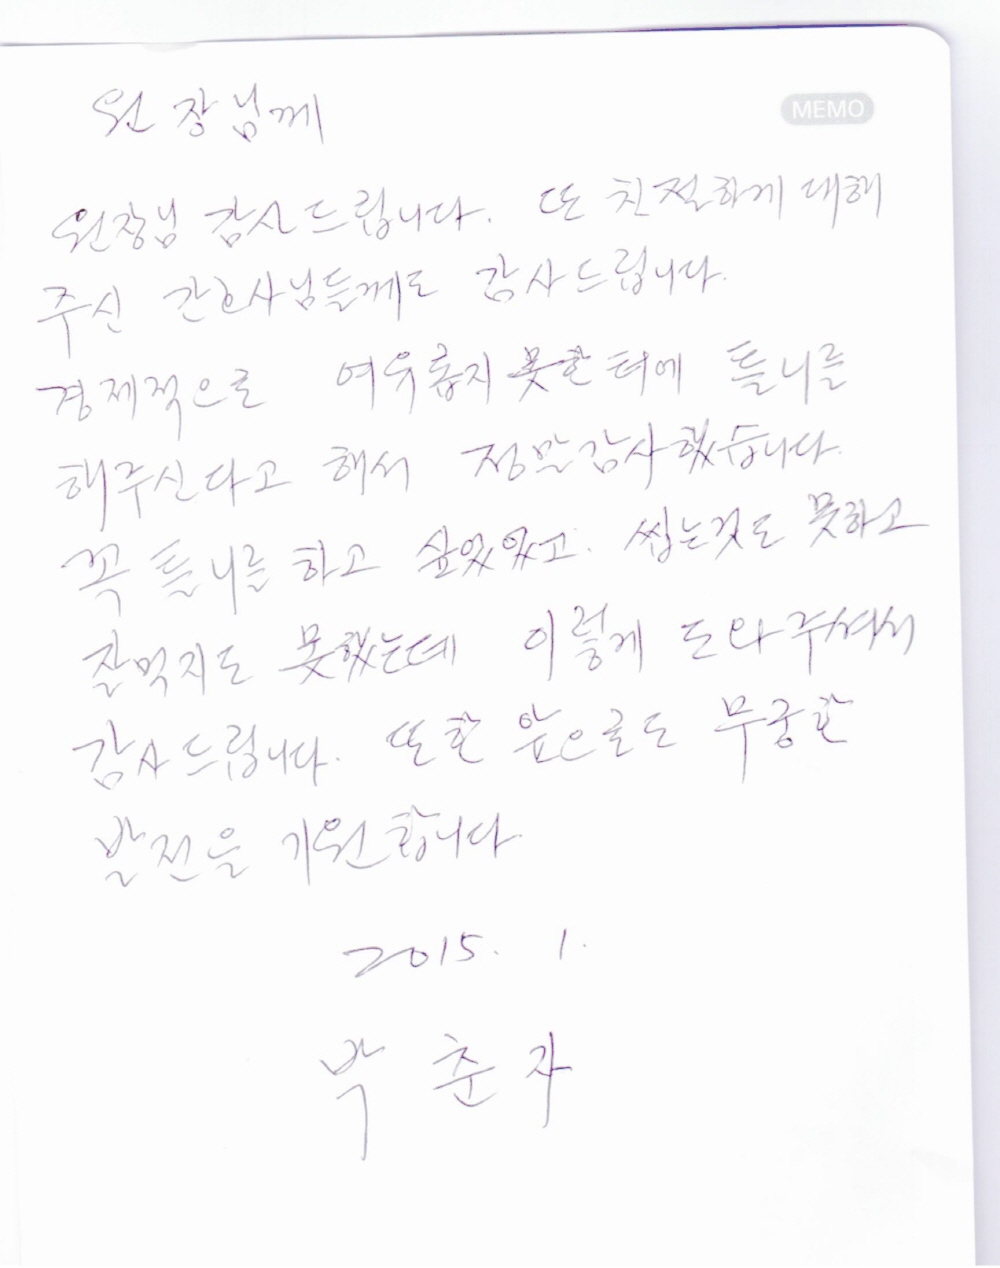 원장님께
MEMO
원장님 감사드립니다. 또 친절하게 대해
주신 간호사님들께도 감사드립니다.
경제적으로 여유롭지 못한 터에 틀니를
해주신다고 해서 정말 감사했습니다.
꼭 틀니를 하고 싶었었고. 씹는것도 못하고
잘먹지도 못했는데 이렇게 도와주셔서
감사드립니다. 또한 앞으로도 무궁한
발전을 기원합니다.
2015. 1.
박춘자